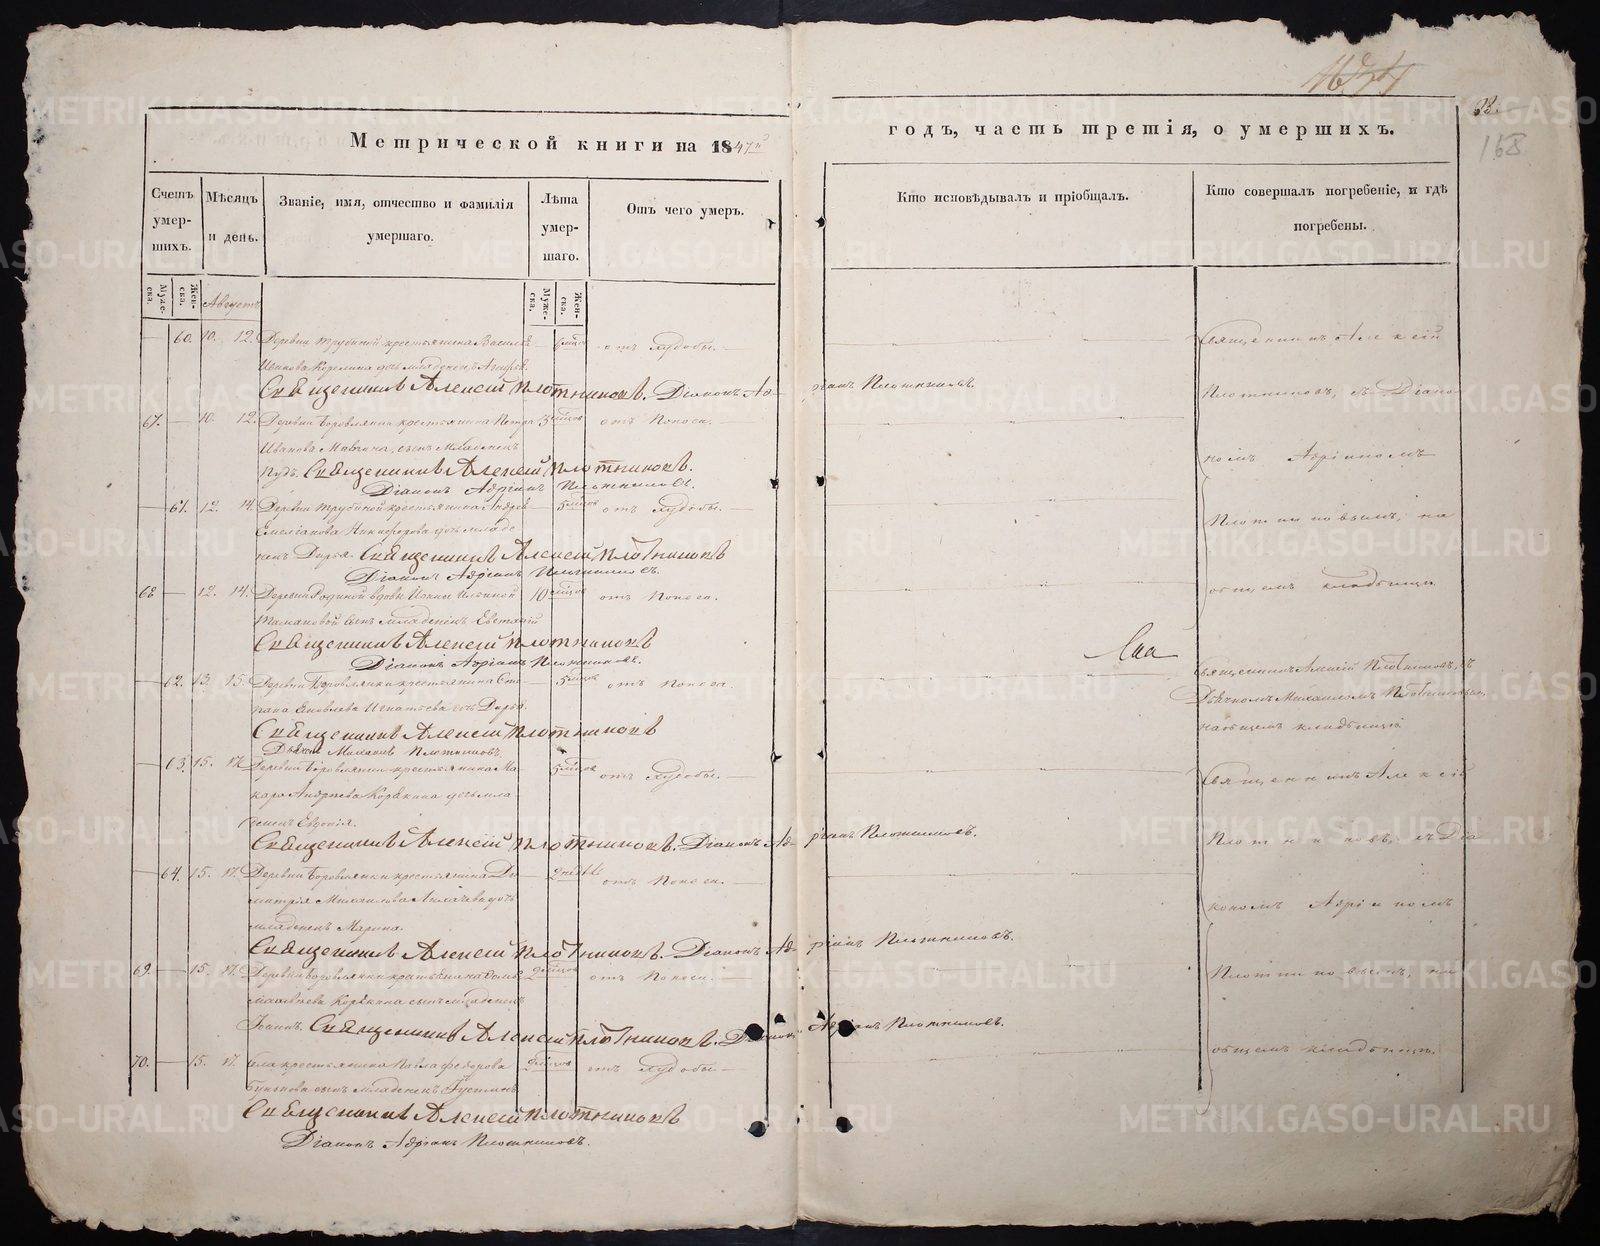 Метрической книги на 1847й
годъ, часть третія, о умершихъ.
33.
168
Счетъ умер-шихъ.
Мѣсяцъ и день.
Званіе, имя, отчество и фамилія умершаго.
Лѣта умер-шаго.
Отъ чего умеръ.
Кто исповѣдывалъ и пріобщалъ.
Кто совершалъ погребеніе, и гдѣ погребены.
Муже-ска.
Жен-ска.
Августъ
Муже-ска.
Жен-ска.
60. 10. 12. Деревни Трубиной крестьянина Василья отъ худобы.
Иванова Корелина дочь младенецъ
Священникъ Алексѣй Плотниковъ. Діаконъ Адріанъ Плотниковъ.
67. 10. 12. Деревни Боровлянки крестьянина Петра 3 мѣсцов отъ поноса.
Иванова сынъ младенецъ
Священникъ Алексѣй Плотниковъ.
Діаконъ Адріанъ Плотниковъ.
61. 12. 14. Деревни Трубиной крестьянина Андрея 5 мѣсцов отъ худобы.
Емеліанова Никифорова дочь младе-
нецъ Дарья. Священникъ Алексѣй Плотниковъ
Діаконъ Адріанъ Плотниковъ.
68 12. 14. Деревни вдовы 10 мѣсцов отъ поноса.
сынъ младенецъ Евстафій
Священникъ Алексѣй Плотниковъ
Діаконъ Адріанъ Плотниковъ.
62. 13. 15. Деревни Боровлянки крестьянина Сте- 5 мѣсцов отъ поноса.
пана Яковлева Игнатьева дочь Дарья.
Священникъ Алексѣй Плотниковъ
Дьячекъ Михаилъ Плотниковъ.
63. 15. 17. Деревни Боровлянки крестьянина Ма- 5 мѣсцов отъ худобы.
кара Андреева Корякина дочь мла-
денецъ Евдокія.
Священникъ Алексѣй Плотниковъ. Діаконъ Адріанъ Плотниковъ.
64. 15. 17. Деревни Боровлянки крестьянина Ди- отъ поноса.
митрія дочь
младенецъ Марина.
Священникъ Алексѣй Плотниковъ. Діаконъ Адріанъ Плотниковъ.
69. 15. 17. Деревни Боровлянки крестьянина отъ поноса.
Матвѣева Корякина сынъ младенецъ
Іоаннъ. Священникъ Алексѣй Плотниковъ. Діаконъ Адріанъ Плотниковъ.
70. 15. 17. Села крестьянина Павла Федорова отъ худобы
сынъ младенецъ Іустинъ
Священникъ Алексѣй Плотниковъ
Діаконъ Адріанъ Плотниковъ.
Священникъ Алексій
Плотниковъ, съ Діако-
номъ Адріаномъ
Плотниковымъ, на
общемъ кладбищѣ
Священникъ Алексій Плотниковъ, съ
Дьячкомъ Михаиломъ Плотниковымъ,
на общемъ кладбищѣ
Священникъ Алексій
Плотниковъ, съ Діа-
кономъ Адріаномъ
Плотниковымъ, на
общемъ кладбищѣ.
METRIKI.GASO-URAL.RU